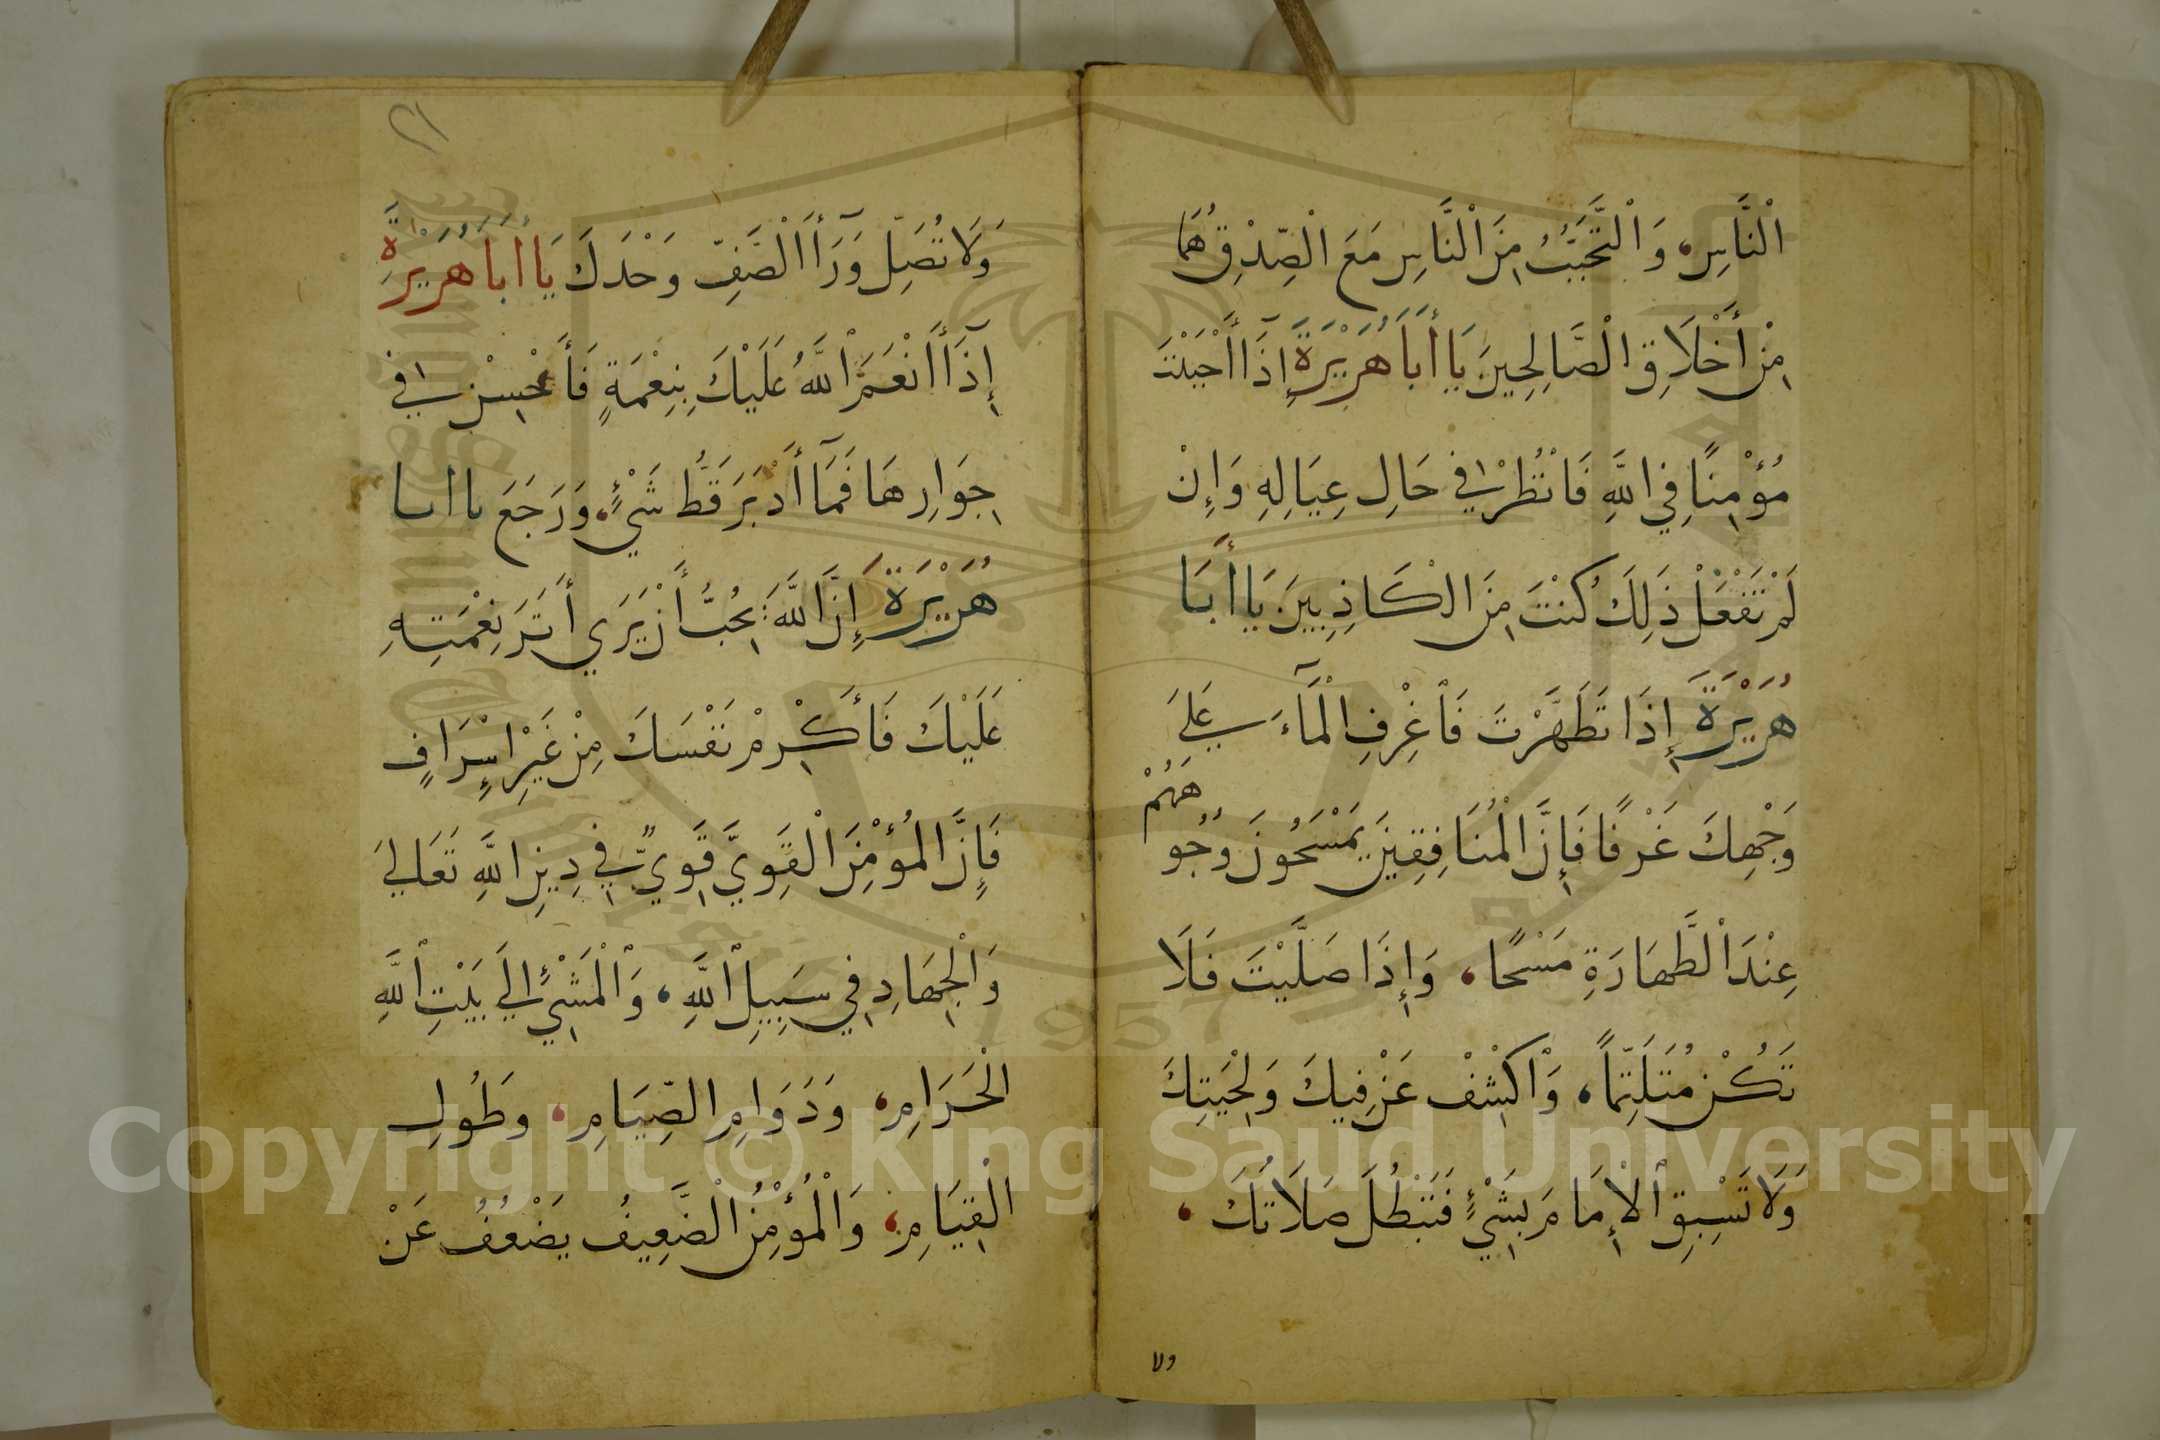 الْنَّاسِ، وَالْتَّحَبُّبُ مِنَ الْنَّاسِ مَعَ الْصِّدْقِ هُمَا
مِنْ أَخْلَاقِ الْصَّالِحِينَ يَا أَبَا هُرَيْرَةَ إِذَا أَحْبَبْتَ
مُؤْمِنًا فِي اللَّهِ فَانْظُرْ فِي حَالِ عِيَالِهِ وَإِنْ
لَمْ تَفْعَلْ ذَلِكَ كُنْتَ مِنَ الْكَاذِبِينَ يَا أَبَا
هُرَيْرَةَ إِذَا تَطَهَّرْتَ فَاغْرِفِ الْمَآءَ عَلَى
وَجْهِكَ غَرْفًا فَإِنَّ الْمُنَافِقِينَ يَمْسَحُونَ وُجُو
هَهُمْ
عِنْدَ الْطَّهَارَةِ مَسْحًا، وَإِذَا صَلَّيْتَ فَلَا
تَكُنْ مُتَلَثِّمًا، وَاكْشِفْ عَنْ فِيكَ وَلِحْيَتِكَ
وَلَا تَسْبِقِ الْإِمَامَ بِشَيْءٍ فَتَبْطُلَ صَلَاتُكَ،
ولا
٢١
وَلَا تُصَلِّ وَرَآءَ الْصَّفِّ وَحْدَكَ يَا أَبَا هُرَيْرَةَ
إِذَا أَنْعَمَ اللَّهُ عَلَيْكَ بِنِعْمَةٍ فَأَحْسِنْ فِي
جِوَارِهَا فَمَا أَدْبَرَ قَطُّ شَيْءٌ، وَرَجَعَ يا ابا
هُرَيْرَةَ إِنَّ اللَّهَ يُحِبُّ أَنْ يَرَى أَثَرَ نِعْمَتِهِ
عَلَيْكَ فَأَكْرِمْ نَفْسَكَ مِنْ غَيْرِ إِسْرَافٍ
فَإِنَّ الْمُؤْمِنَ الْقَوِيَّ قَوِيٌّ فِي دِينِ اللَّهِ تَعَالَى
وَالْجِهَادِ فِي سَبِيلِ اللَّهِ، وَالْمَشْيِ إِلَى بَيْتِ اللَّهِ
الْحَرَامِ، وَدَوَامِ الصِّيَامِ، وَطُولِ
الْقِيَامِ، وَالْمُؤْمِنُ الْضَّعِيفُ يَضْعُفُ عَنْ
Copyright © King Saud University
1957